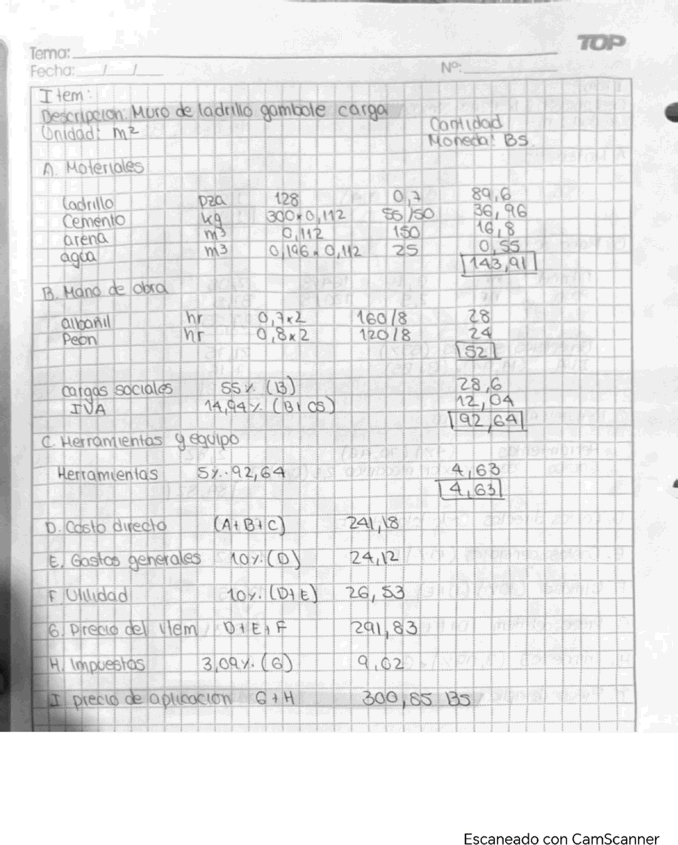 TOP
Tema:
Fecha: / /
Nº:
Item:
Descripcion: Muro de ladrillo gambote carga
Unidad: m2
Cantidad
Moneda: Bs
A. Materiales
ladrillo pza 128 0,7 89,6
Cemento kg 300*0,112 55/50 36,96
arena m3 0,112 150 16,8
agua m3 0,196*0,112 25 0,55
143,91
B. Mano de obra
albañil hr 0,7*2 160/8 28
Peon hr 0,8*2 120/8 24
52
cargas sociales 55% (B) 28,6
IVA 14,94% (B+CS) 12,04
92,64
C. Herramientas y equipo
Herramientas 5%·92,64 4,63
4,63
D. Costo directo (A+B+C) 241,18
E. Gastos generales 10% (D) 24,12
F. Utilidad 10%. (D+E) 26,53
G. Precio del item D+E+F 291,83
H. Impuestos 3,09% (G) 9,02
I precio de aplicacion G+H 300,85 Bs
Escaneado con CamScanner